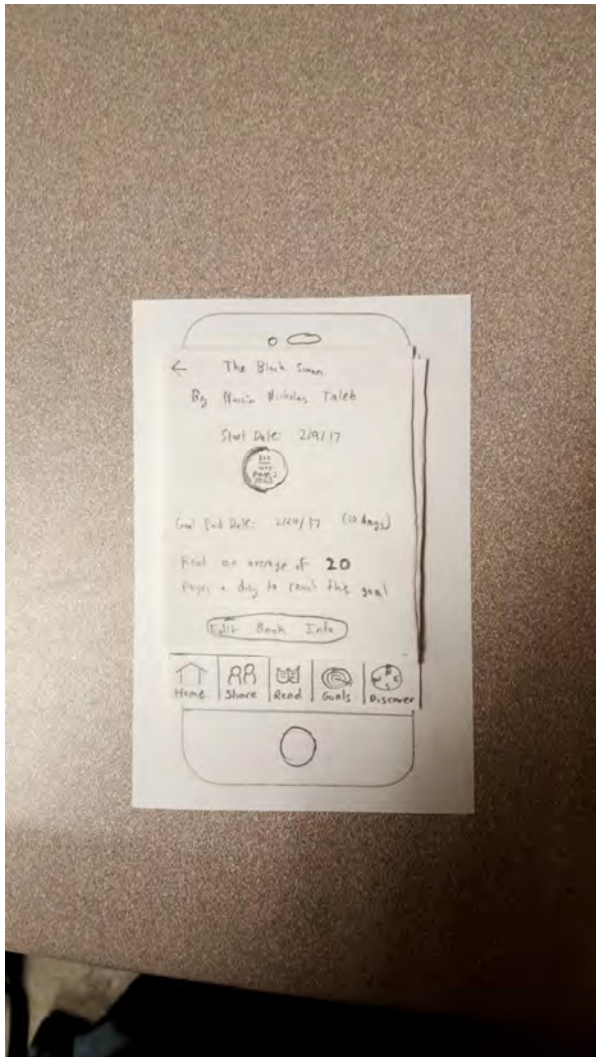 The Black Swan
By Nassim Nicholas Taleb
Start Date: 2/9/17
Pages
Read
Goal End Date: 2/20/17 (10 days)
Read an average of 20
Pages a day to reach this goal
Edit Book Info
Home Share Read Goals Discover